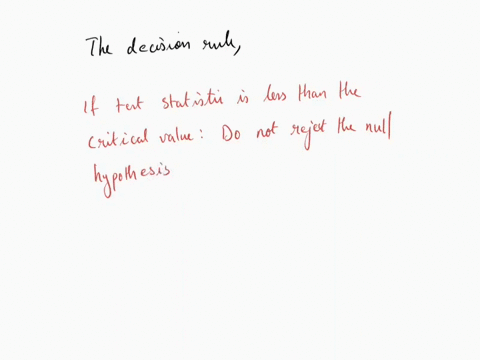 The decision rule,
If test statistic is less than the
critical value: Do not reject the null
hypothesis